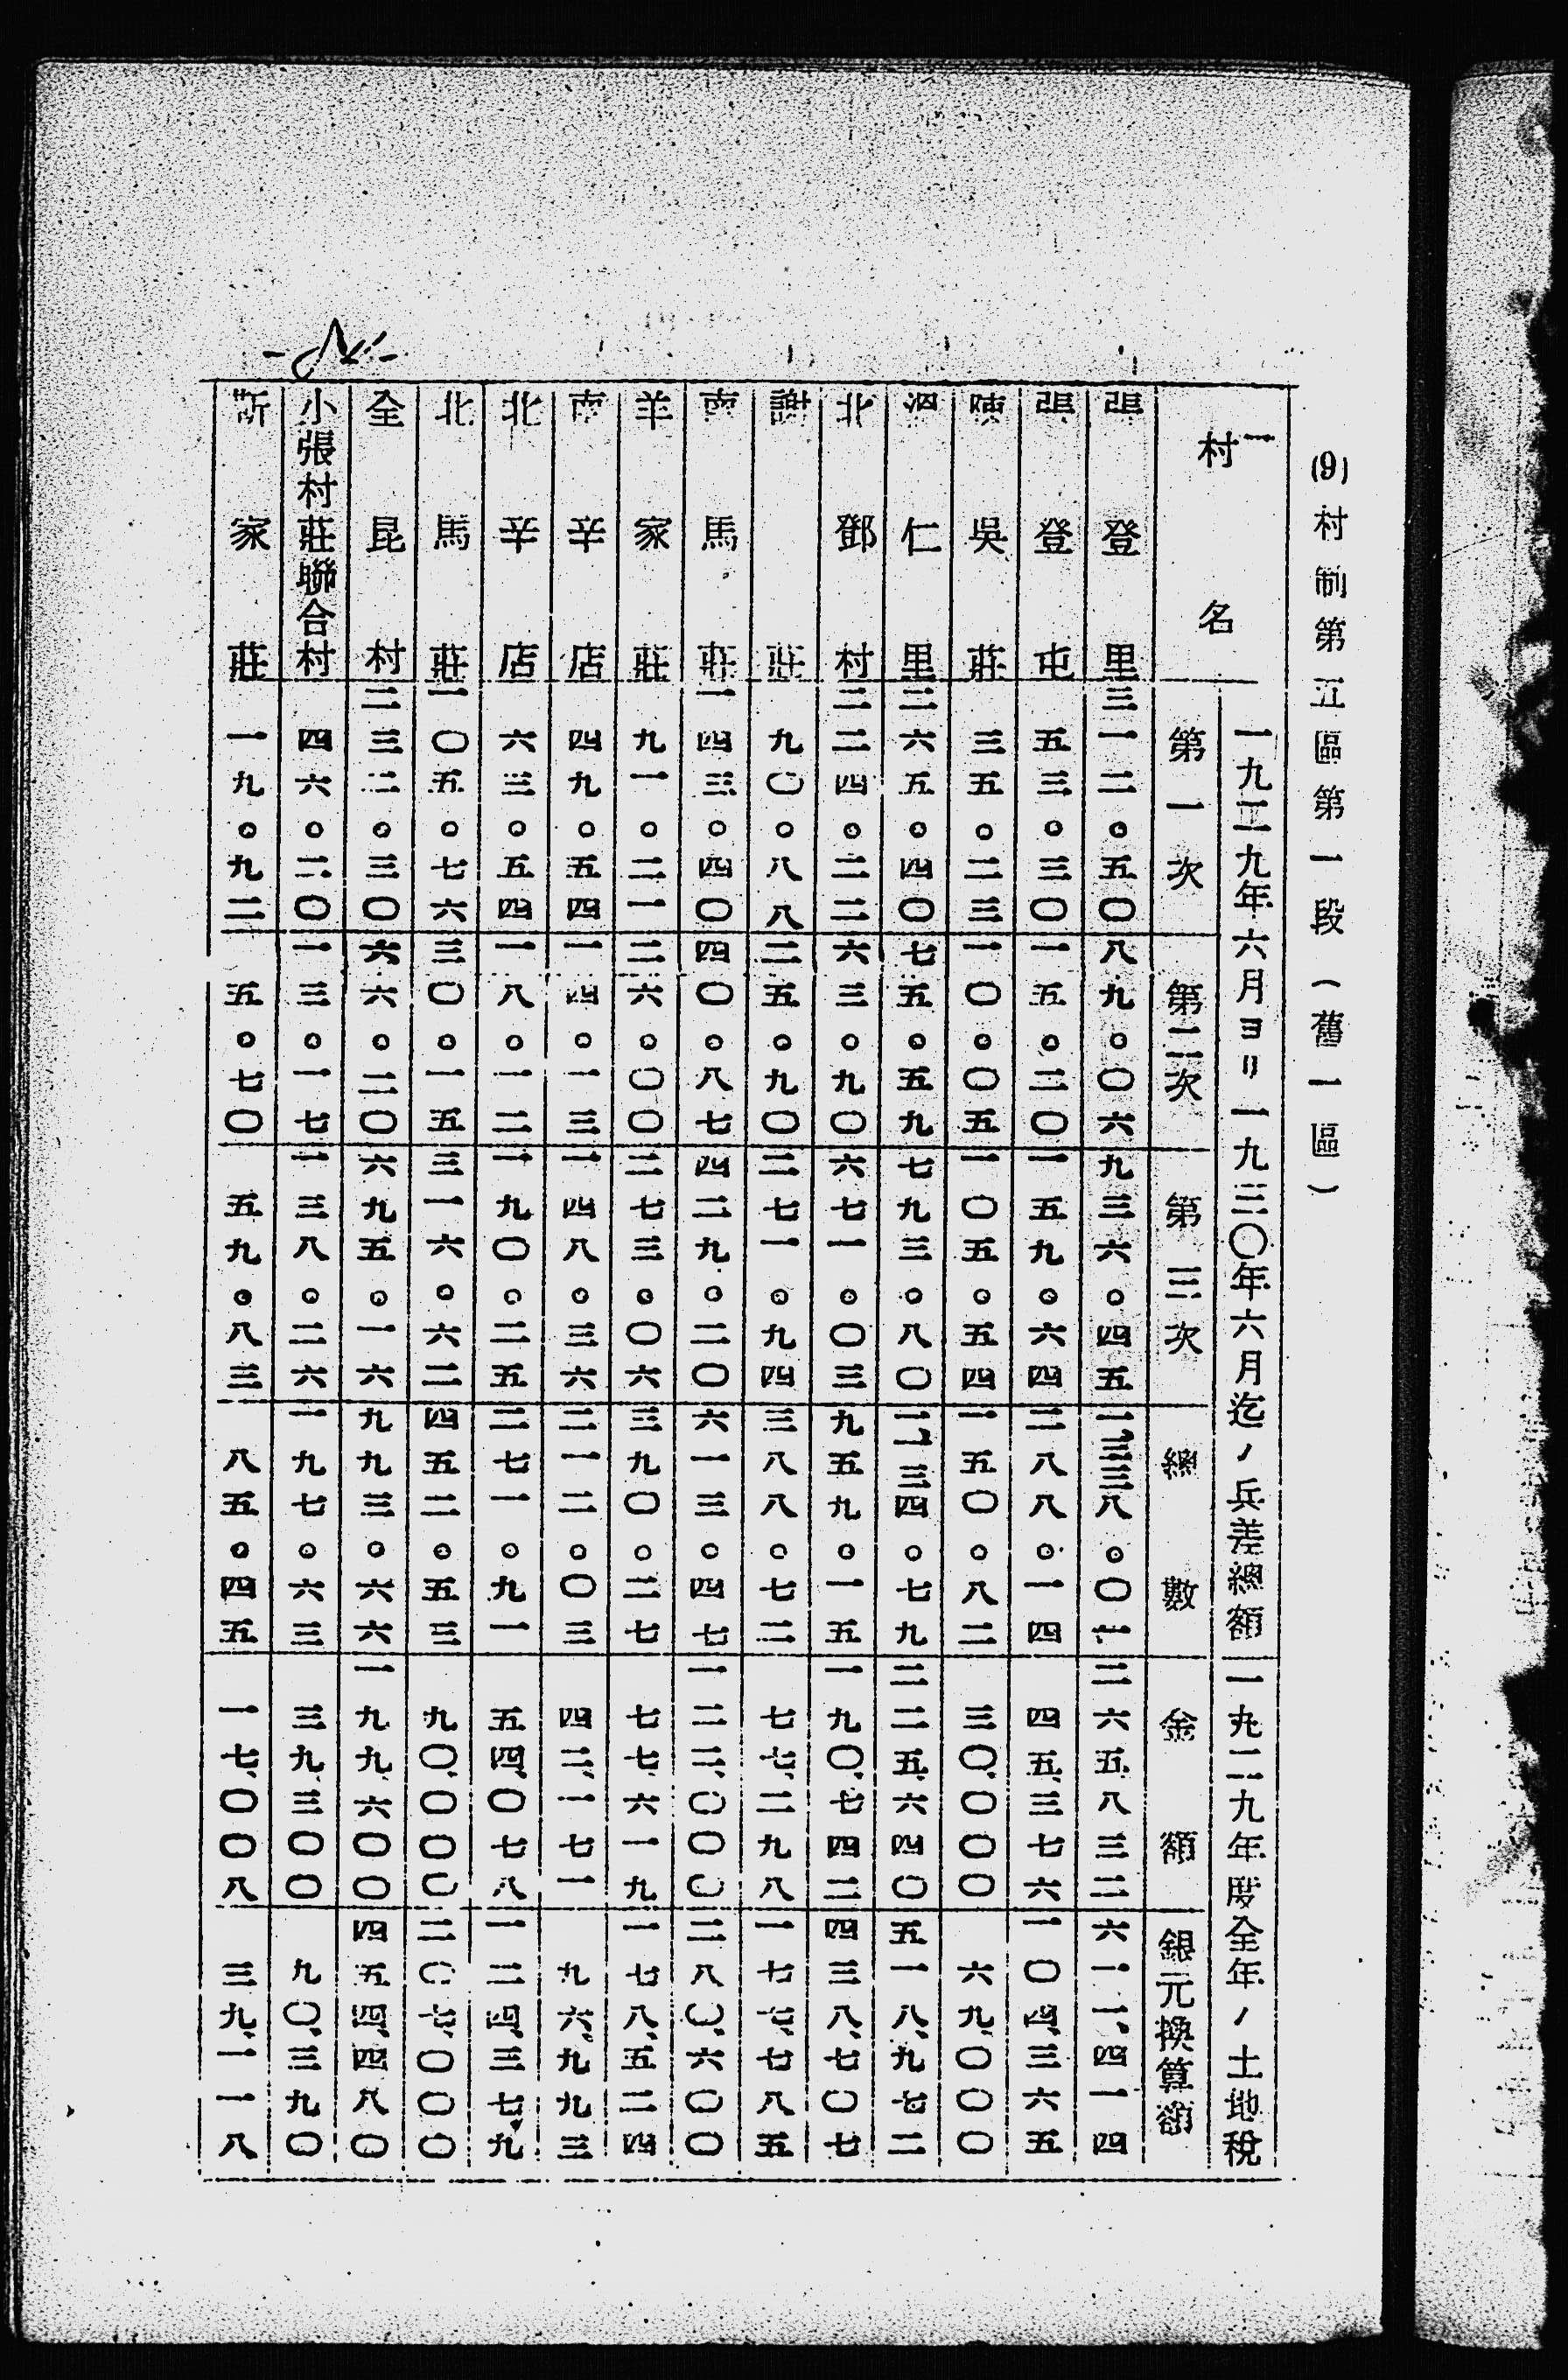 (9)村制第五區第一段(舊一區)
村名
一九二九年六月ヨリ一九三〇年六月迄ノ兵差總額
一九二九年度全年ノ土地稅
第一次 第二次 第三次 總數 金額 銀元換算額
張登里 三一二。五〇 八九。〇六 九三六。四五 一、三三八。〇一 二六五八三二 六一一、四一四
張登屯 五三。三〇 一五。二〇 一五九。六四 二八八。一四 四五、三七六 一〇四、三六五
陳吳莊 三五。二三 一〇。〇五 一〇五。五四 一五〇。八二 三〇、〇〇〇 六九、〇〇〇
泗仁里 二六五。四〇 七五。五九 七九三。八〇 一、一三四。七九 二二五、六四〇 五一八、九七二
北鄧村 二二四。二二 六三。九〇 六七一。〇三 九五九。一五 一九〇、七四二 四三八、七〇七
謝莊 九〇。八八 二五。九〇 二七一。九四 三八八。七二 七七、二九八 一七七、七八五
南馬莊 一四三。四〇 四〇。八七 四二九。二〇 六一三。四七 一二二、〇〇〇 二八〇、六〇〇
羊家莊 九一。二一 二六。〇〇 二七三。〇六 三九〇。二七 七七、六一九 一七八、五二四
南辛店 四九。五四 一四。一三 一四八。三六 二一二。〇三 四二、一七一 九六、九九三
北辛店 六三。五四 一八。一二 一九〇。二五 二七一。九一 五四、〇七八 一二四、三七九
北馬莊 一〇五。七六 三〇。一五 三一六。六二 四五二。五三 九〇、〇〇〇 二〇七、〇〇〇
全昆村 二三二。三〇 六六。二〇 六九五。一六 九九三。六六 一九九、六〇〇 四五四、四八〇
小張村莊聯合村 四六。二〇 一三。一七 一三八。二六 一九七。六三 三九、三〇〇 九〇、三九〇
靳家莊 一九。九二 五。七〇 五九。八三 八五。四五 一七、〇〇八 三九、一一八